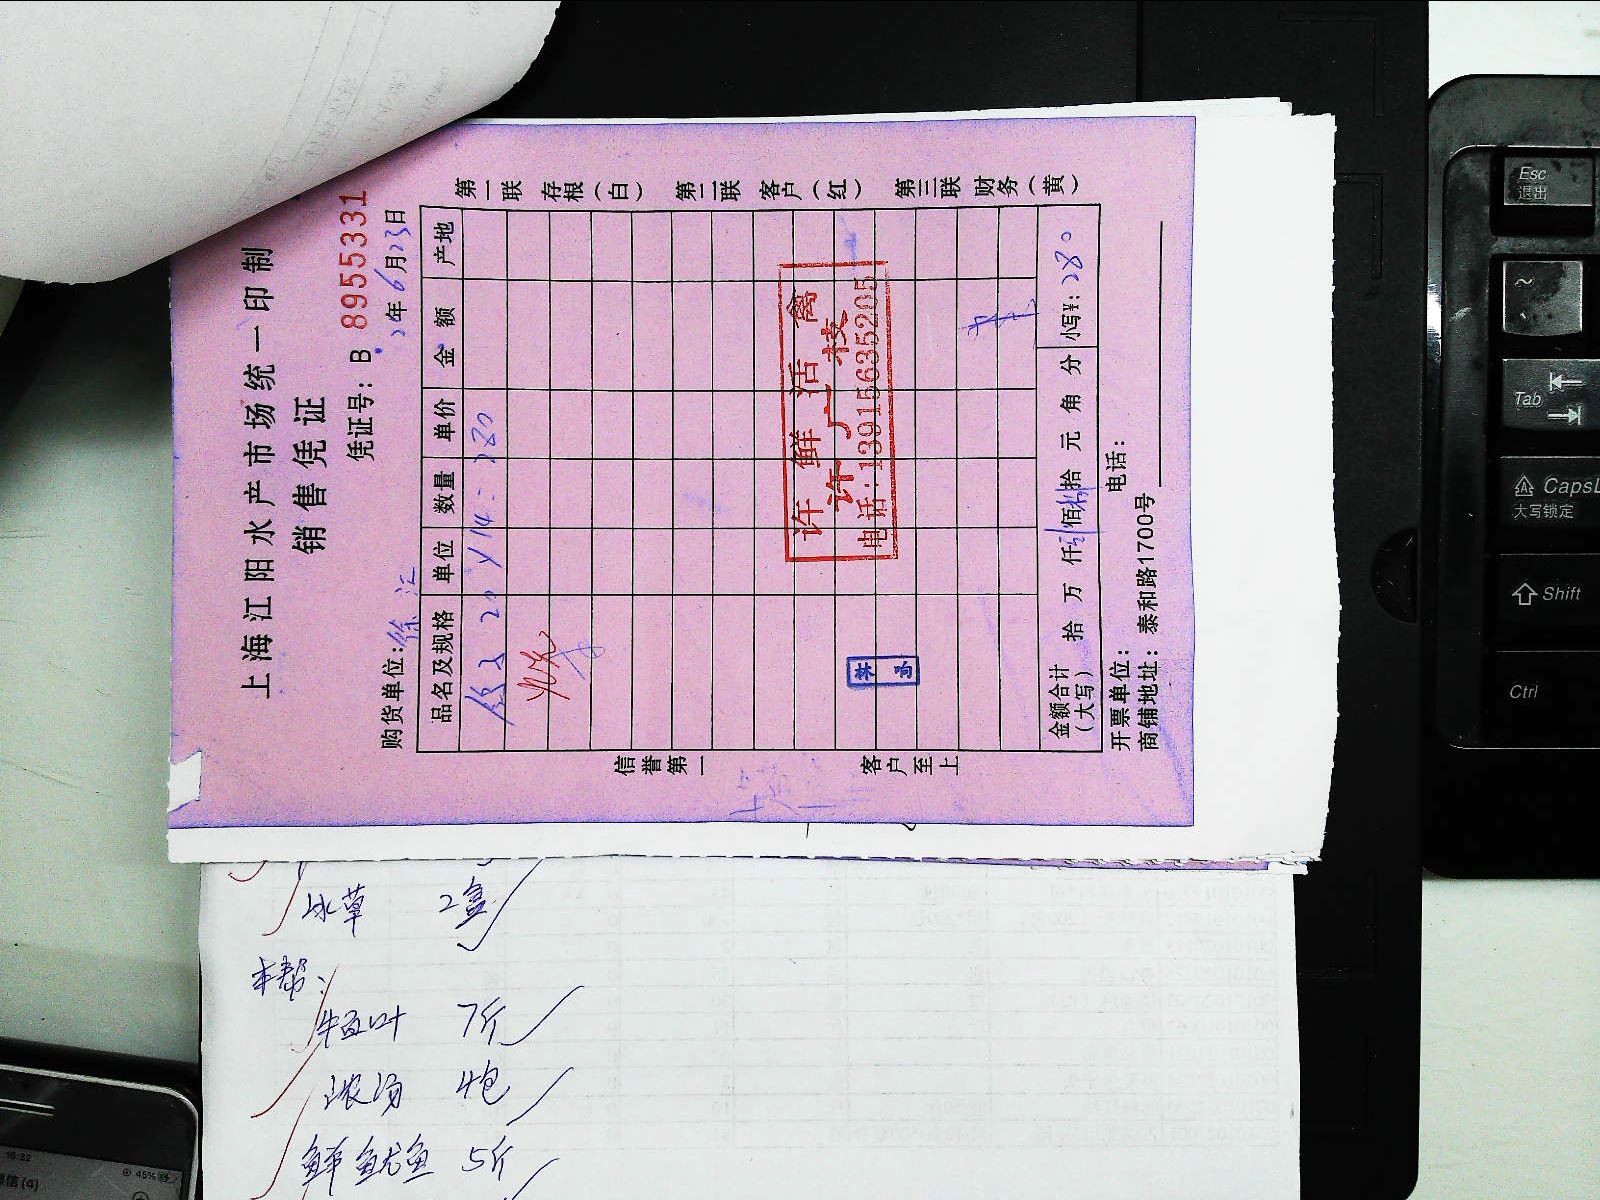 上海江阳水产市场统一印制
销售凭证
凭证号：B 8955331
购货单位：徐汇
2年6月23日
品名及规格 单位 数量 单价 金额 产地
20 × 14 = 280
许鲜活禽
许广校
电话：13915635205
金额合计（大写） 拾 万 仟 佰 拾 元 角 分 小写¥：280
开票单位： 电话：
商铺地址：泰和路1700号
信誉第一 客户至上
第一联 存根（白） 第二联 客户（红） 第三联 财务（黄）
冰草 2盒
本帮：
7斤
浓汤 4包
鲜鱿鱼 5斤
Esc
退出
~
Tab
CapsL
大写锁定
Shift
Ctrl
16:32
45%
微信(4)